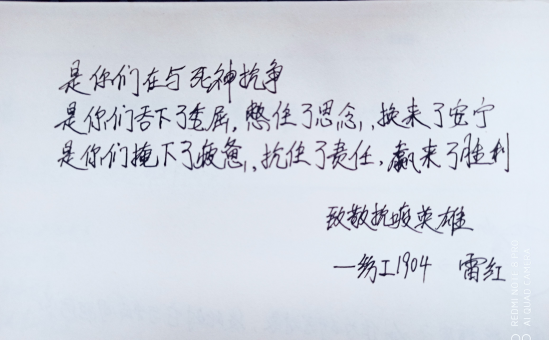 是你们在与死神抗争
是你们吞下了委屈，憋住了思念，换来了安宁
是你们掩下了疲惫，抗住了责任，赢来了胜利
致敬抗疫英雄
—纺工1904 雷红
REDMI NO
AI QUAD CAMERA